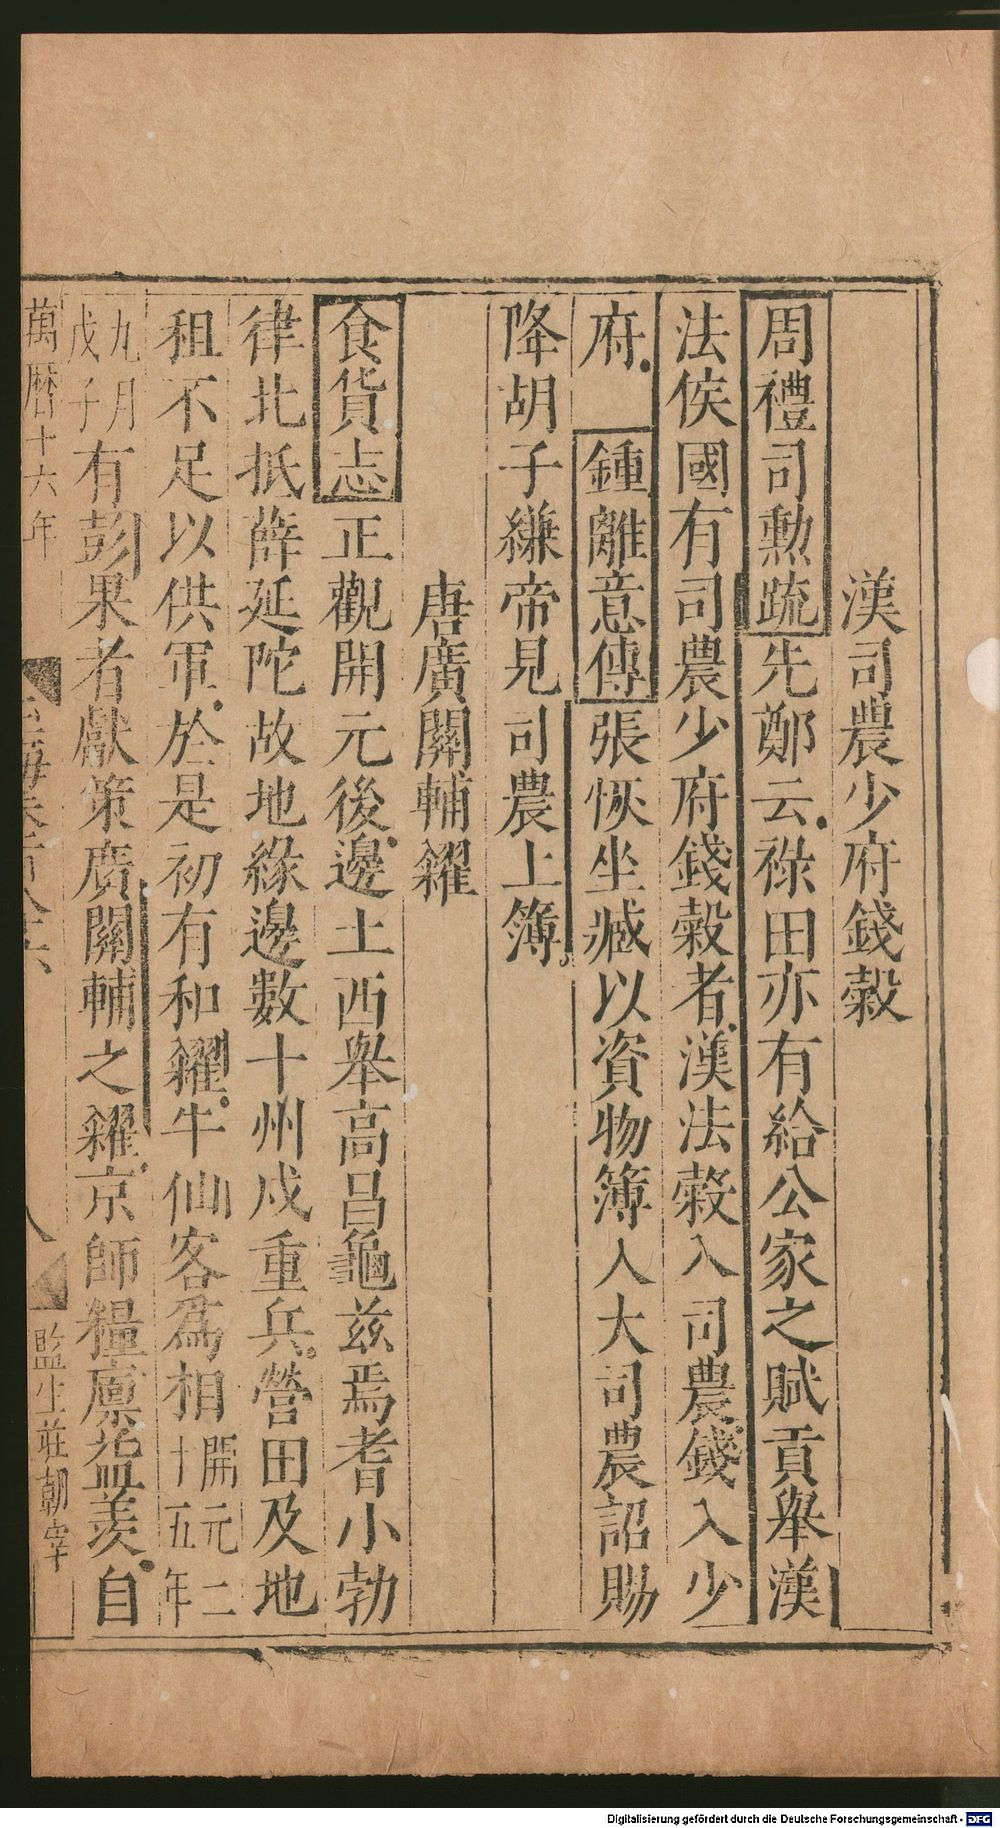 漢司農少府錢穀
周禮司勲疏先鄭云祿田亦有給公家之賦貢舉漢
法侯國有司農少府錢穀者漢法穀入司農錢入少
府 鍾離意傳張恢坐臧以資物簿入大司農詔賜
降胡子縑帝見司農上簿
唐廣關輔糴
食貨志正觀開元後邊土西舉高昌龜兹焉耆小勃
律北抵薛延陀故地緣邊數十州戍重兵營田及地
租不足以供軍於是初有和糴牛仙客爲相開元二十五年
九月戊子有彭果者獻策廣關輔之糴京師糧廪益羡自
萬曆十六年
玉海卷一百八十六
八
監生莊朝宰
Digitalisierung gefördert durch die Deutsche Forschungsgemeinschaft - DFG